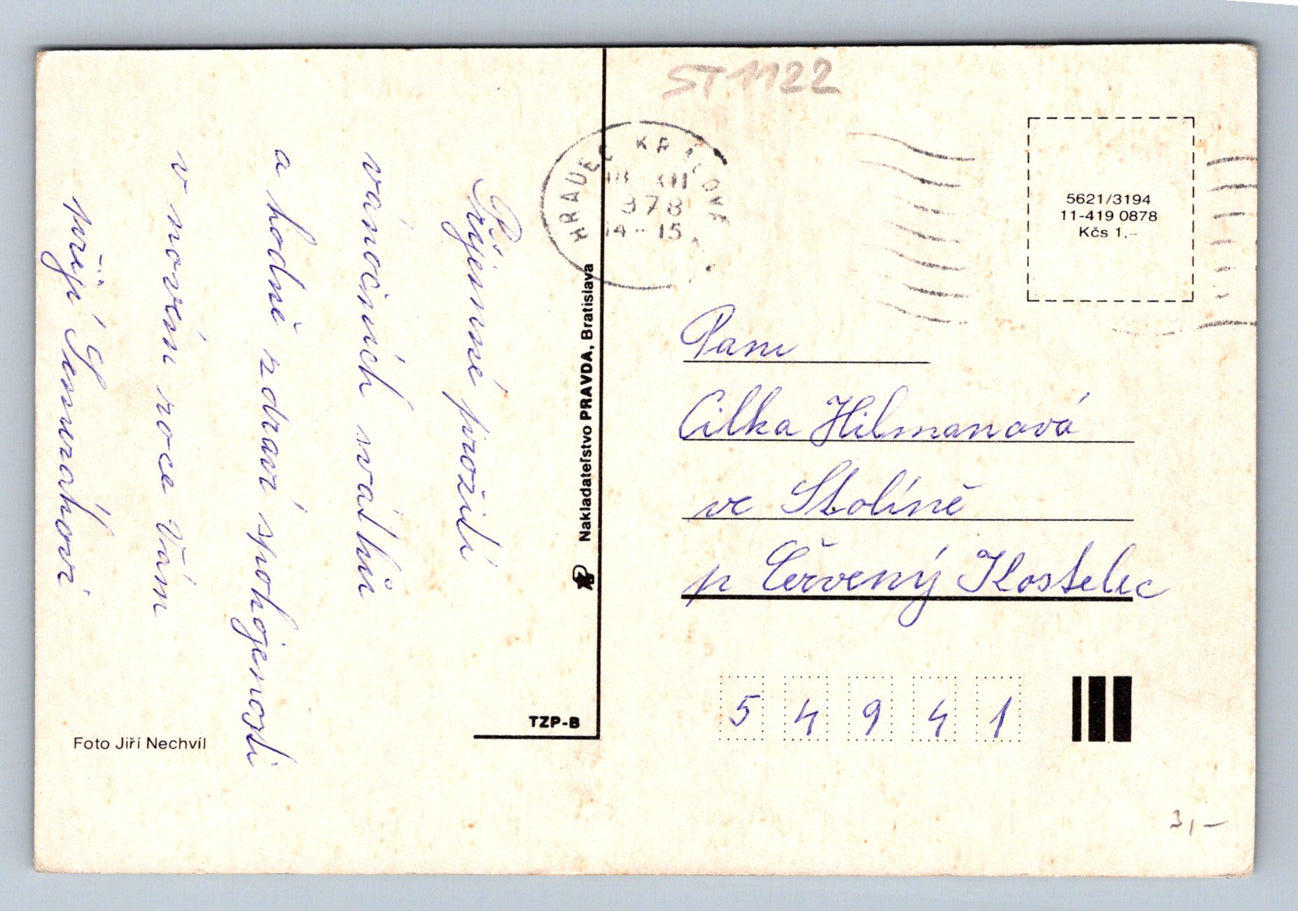 Příjemné prožití
vánočních svátků
a hodně zdraví spokojenosti
v novém roce Vám
přejí Semerákovi
Foto Jiří Nechvíl
TZP-B
Nakladateľstvo PRAVDA, Bratislava
ST 1122
HRADEC KRÁLOVÉ
18 XII
978
14-15
5621/3194
11-419 0878
Kčs 1,–
Paní
Cilka Hilmanová
ve Stolíně
p Červený Kostelec
5 4 9 4 1
3,–